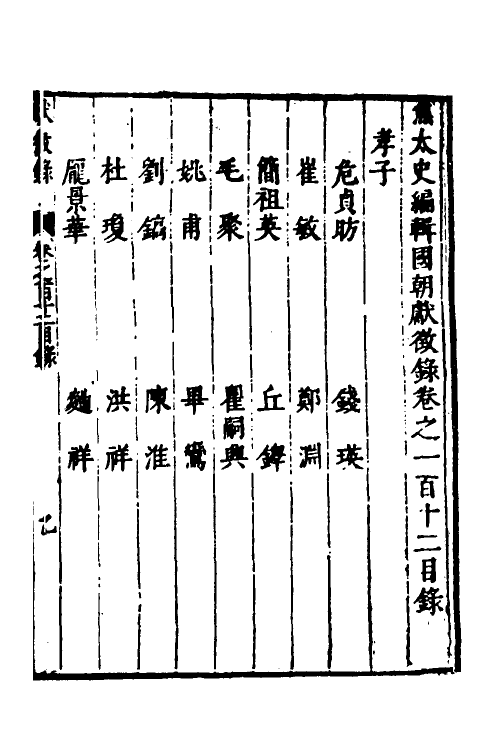 焦太史編輯國朝獻徵錄卷之一百十二目錄
孝子
危貞昉 錢瑛
崔敏 鄭淵
簡祖英 丘鐸
毛聚 瞿嗣興
姚甫 畢鸞
劉鎬 陳淮
杜瓊 洪祥
龐景華 祥
獻徵錄 卷之一百十二目錄